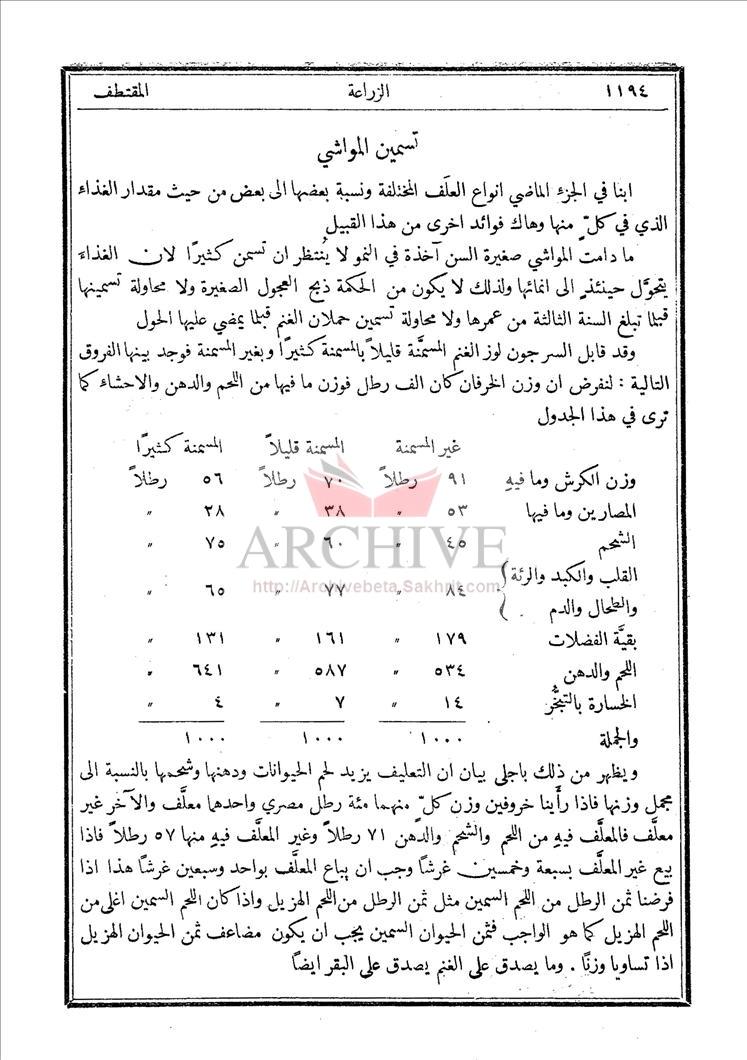 ١١٩٤ الزراعة المقتطف
تسمين المواشي
ابنا في الجزء الماضي انواع العلَف المختلفة ونسبة بعضها الى بعض من حيث مقدار الغذاء
الذي في كلّ منها وهاك فوائد اخرى من هذا القبيل
ما دامت المواشي صغيرة السن آخذة في النمو لا يُنتظر ان تسمن كثيرًا لان الغذاء
يتحوَّل حينئذٍ الى انمائها ولذلك لا يكون من الحكمة ذبح العجول الصغيرة ولا محاولة تسمينها
قبلما تبلغ السنة الثالثة من عمرها ولا محاولة تسمين حملان الغنم قبلما يمضي عليها الحول
وقد قابل السر جون لوز الغنم المسمَّنة قليلاً بالمسمنة كثيرًا وبغير المسمنة فوجد بينها الفروق
التالية : لنفرض ان وزن الخرفان كان الف رطل فوزن ما فيها من اللحم والدهن والاحشاء كما
ترى في هذا الجدول
غير المسمنة المسمنة قليلاً المسمنة كثيرًا
وزن الكرش وما فيهِ ٩١ رطلاً ٧٠ رطلاً ٥٦ رطلاً
المصارين وما فيها ٥٣ " ٣٨ " ٢٨ "
الشحم ٤٥ " ٦٠ " ٧٥ "
القلب والكبد والرئة
والطحال والدم ٨٤ " ٧٧ " ٦٥ "
بقيَّة الفضلات ١٧٩ " ١٦١ " ١٣١ "
اللحم والدهن ٥٣٤ " ٥٨٧ " ٦٤١ "
الخسارة بالتبخُّر ١٤ " ٧ " ٤ "
والجملة ١٠٠٠ ١٠٠٠ ١٠٠٠
ويظهر من ذلك باجلى بيان ان التعليف يزيد لحم الحيوانات ودهنها وشحمها بالنسبة الى
مجمل وزنها فاذا رأَينا خروفين وزن كلّ منهما مئة رطل مصري واحدهما معلَّف والآخر غير
معلَّف فالمعلَّف فيهِ من اللحم والشحم والدهن ٧١ رطلاً وغير المعلَّف فيهِ منها ٥٧ رطلاً فاذا
بيع غير المعلَّف بسبعة وخمسين غرشًا وجب ان يباع المعلَّف بواحد وسبعين غرشًا هذا اذا
فرضنا ثمن الرطل من اللحم السمين مثل ثمن الرطل من اللحم الهزيل واذا كان اللحم السمين اغلى من
اللحم الهزيل كما هو الواجب فثمن الحيوان السمين يجب ان يكون مضاعف ثمن الحيوان الهزيل
اذا تساويا وزنًا . وما يصدق على الغنم يصدق على البقر ايضاً
ARCHIVE
http://Archivebeta.Sakhrit.com